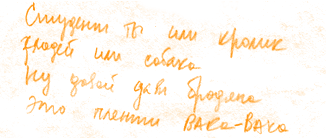 Студент ты или кролик
злодей или собака
Ну давай дави бродяга
Это плентти вака-вака